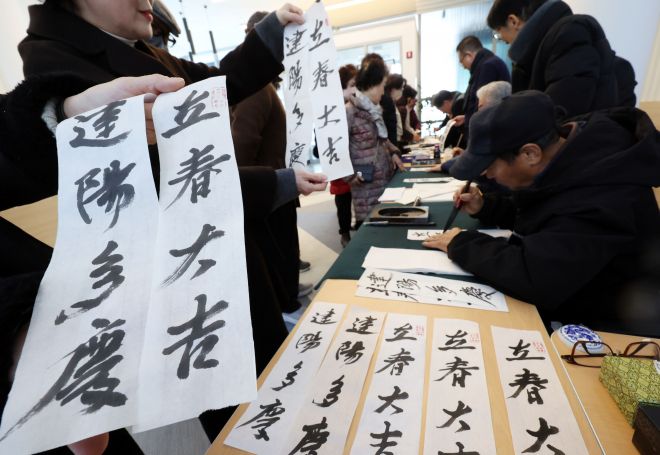 立春大吉
建陽多慶
立春大吉
建陽多慶
建陽多慶
建陽多慶
建陽多
立春大吉
立春大
立春大